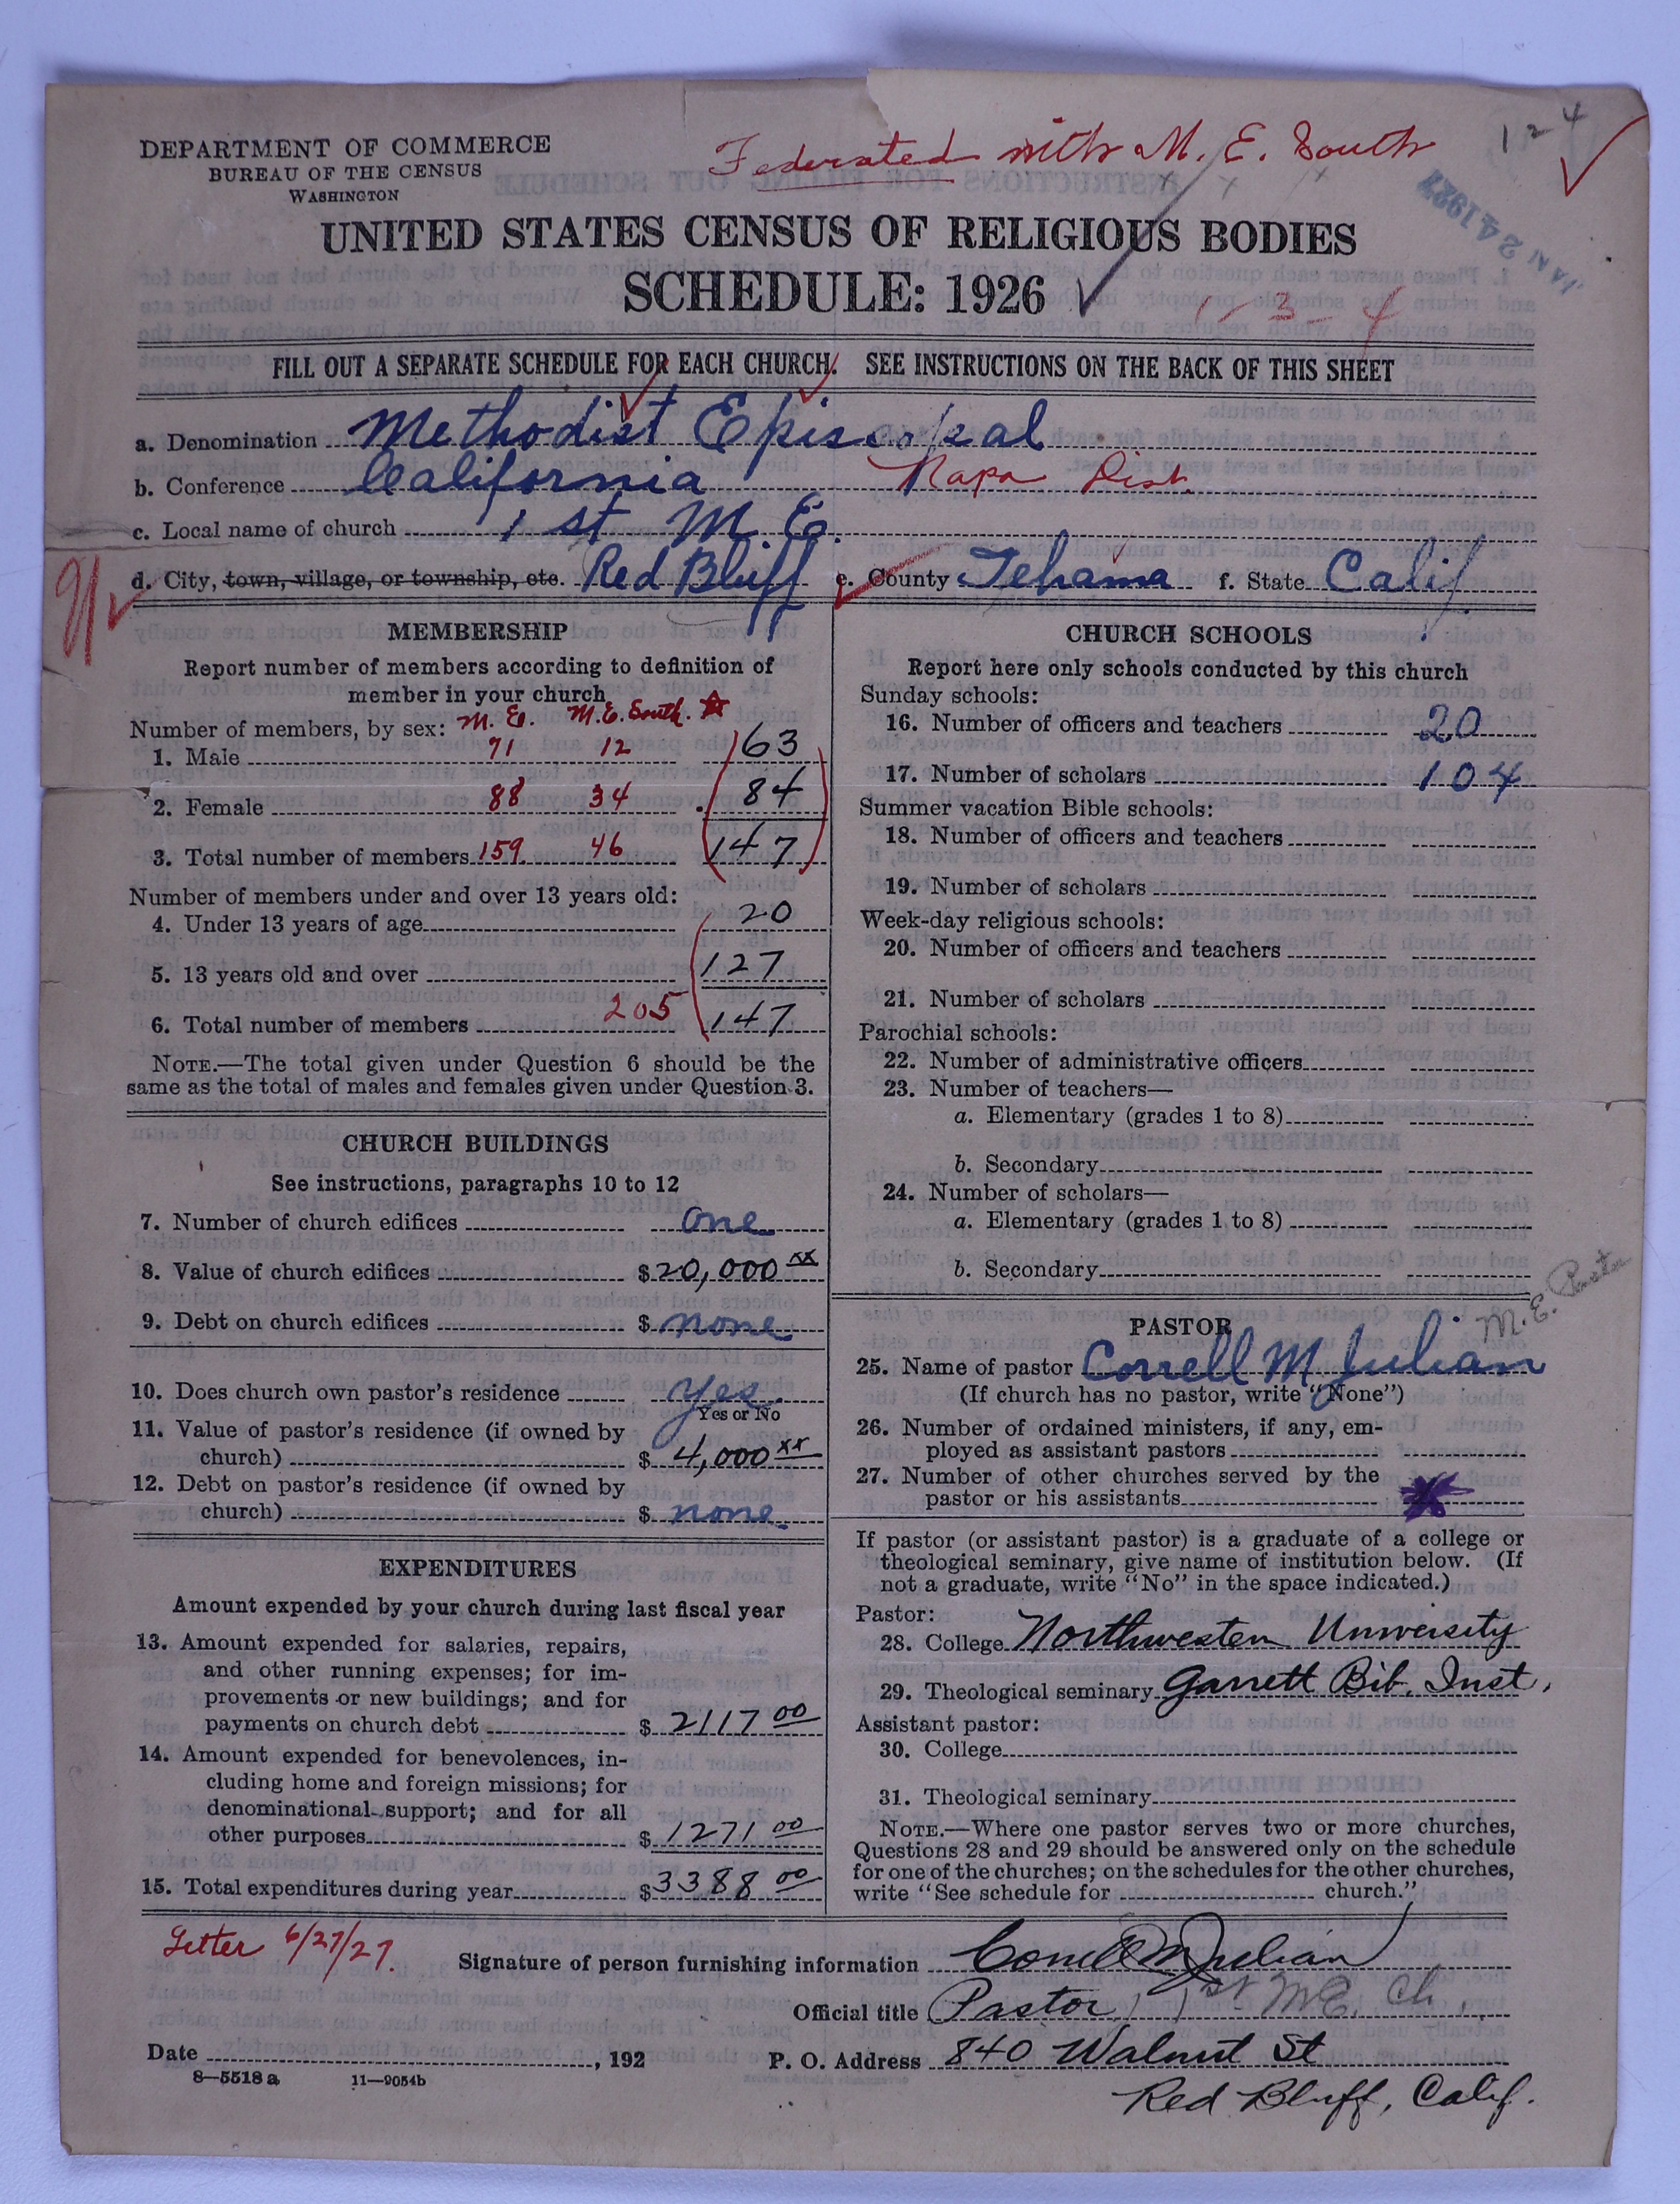 Federated with M. E. South
124
DEPARTMENT OF COMMERCE
BUREAU OF THE CENSUS
WASHINGTON
JAN 24 1927
UNITED STATES CENSUS OF RELIGIOUS BODIES
SCHEDULE: 1926
1-3-4
FILL OUT A SEPARATE SCHEDULE FOR EACH CHURCH. SEE INSTRUCTIONS ON THE BACK OF THIS SHEET
a. Denomination Methodist Episcopal
b. Conference California Napa Dist.
c. Local name of church 1st M. E.
d. City, town, village, or township, etc. Red Bluff e. County Tehama f. State Calif.
MEMBERSHIP
Report number of members according to definition of
member in your church
Number of members, by sex: M. E. M.E. South.
1. Male 71 12 63
2. Female 88 34 84
3. Total number of members 159 46 147
Number of members under and over 13 years old:
4. Under 13 years of age 20
5. 13 years old and over 127
6. Total number of members 205 147
NOTE.—The total given under Question 6 should be the
same as the total of males and females given under Question 3.
CHURCH BUILDINGS
See instructions, paragraphs 10 to 12
7. Number of church edifices one
8. Value of church edifices $20,000 xx
9. Debt on church edifices $ none
10. Does church own pastor's residence Yes.
Yes or No
11. Value of pastor's residence (if owned by
church) $ 4,000 xx
12. Debt on pastor's residence (if owned by
church) $ none.
EXPENDITURES
Amount expended by your church during last fiscal year
13. Amount expended for salaries, repairs,
and other running expenses; for im-
provements or new buildings; and for
payments on church debt $ 2117 00
14. Amount expended for benevolences, in-
cluding home and foreign missions; for
denominational support; and for all
other purposes $ 1271 00
15. Total expenditures during year $3388 00
CHURCH SCHOOLS
Report here only schools conducted by this church
Sunday schools:
16. Number of officers and teachers 20
17. Number of scholars 104
Summer vacation Bible schools:
18. Number of officers and teachers
19. Number of scholars
Week-day religious schools:
20. Number of officers and teachers
21. Number of scholars
Parochial schools:
22. Number of administrative officers
23. Number of teachers—
a. Elementary (grades 1 to 8)
b. Secondary
24. Number of scholars—
a. Elementary (grades 1 to 8)
b. Secondary
M. E. Pastor
PASTOR
25. Name of pastor Correll M Julian
(If church has no pastor, write "None")
26. Number of ordained ministers, if any, em-
ployed as assistant pastors
27. Number of other churches served by the
pastor or his assistants
If pastor (or assistant pastor) is a graduate of a college or
theological seminary, give name of institution below. (If
not a graduate, write "No" in the space indicated.)
Pastor:
28. College Northwestern University
29. Theological seminary Garrett Bib. Inst.
Assistant pastor:
30. College
31. Theological seminary
NOTE.—Where one pastor serves two or more churches,
Questions 28 and 29 should be answered only on the schedule
for one of the churches; on the schedules for the other churches,
write "See schedule for church."
Letter 6/27/27.
Signature of person furnishing information Correll M Julian
Official title Pastor, 1st M.E. Ch.
Date , 192 P. O. Address 840 Walnut St
8—5518 a 11—9054b
Red Bluff, Calif.